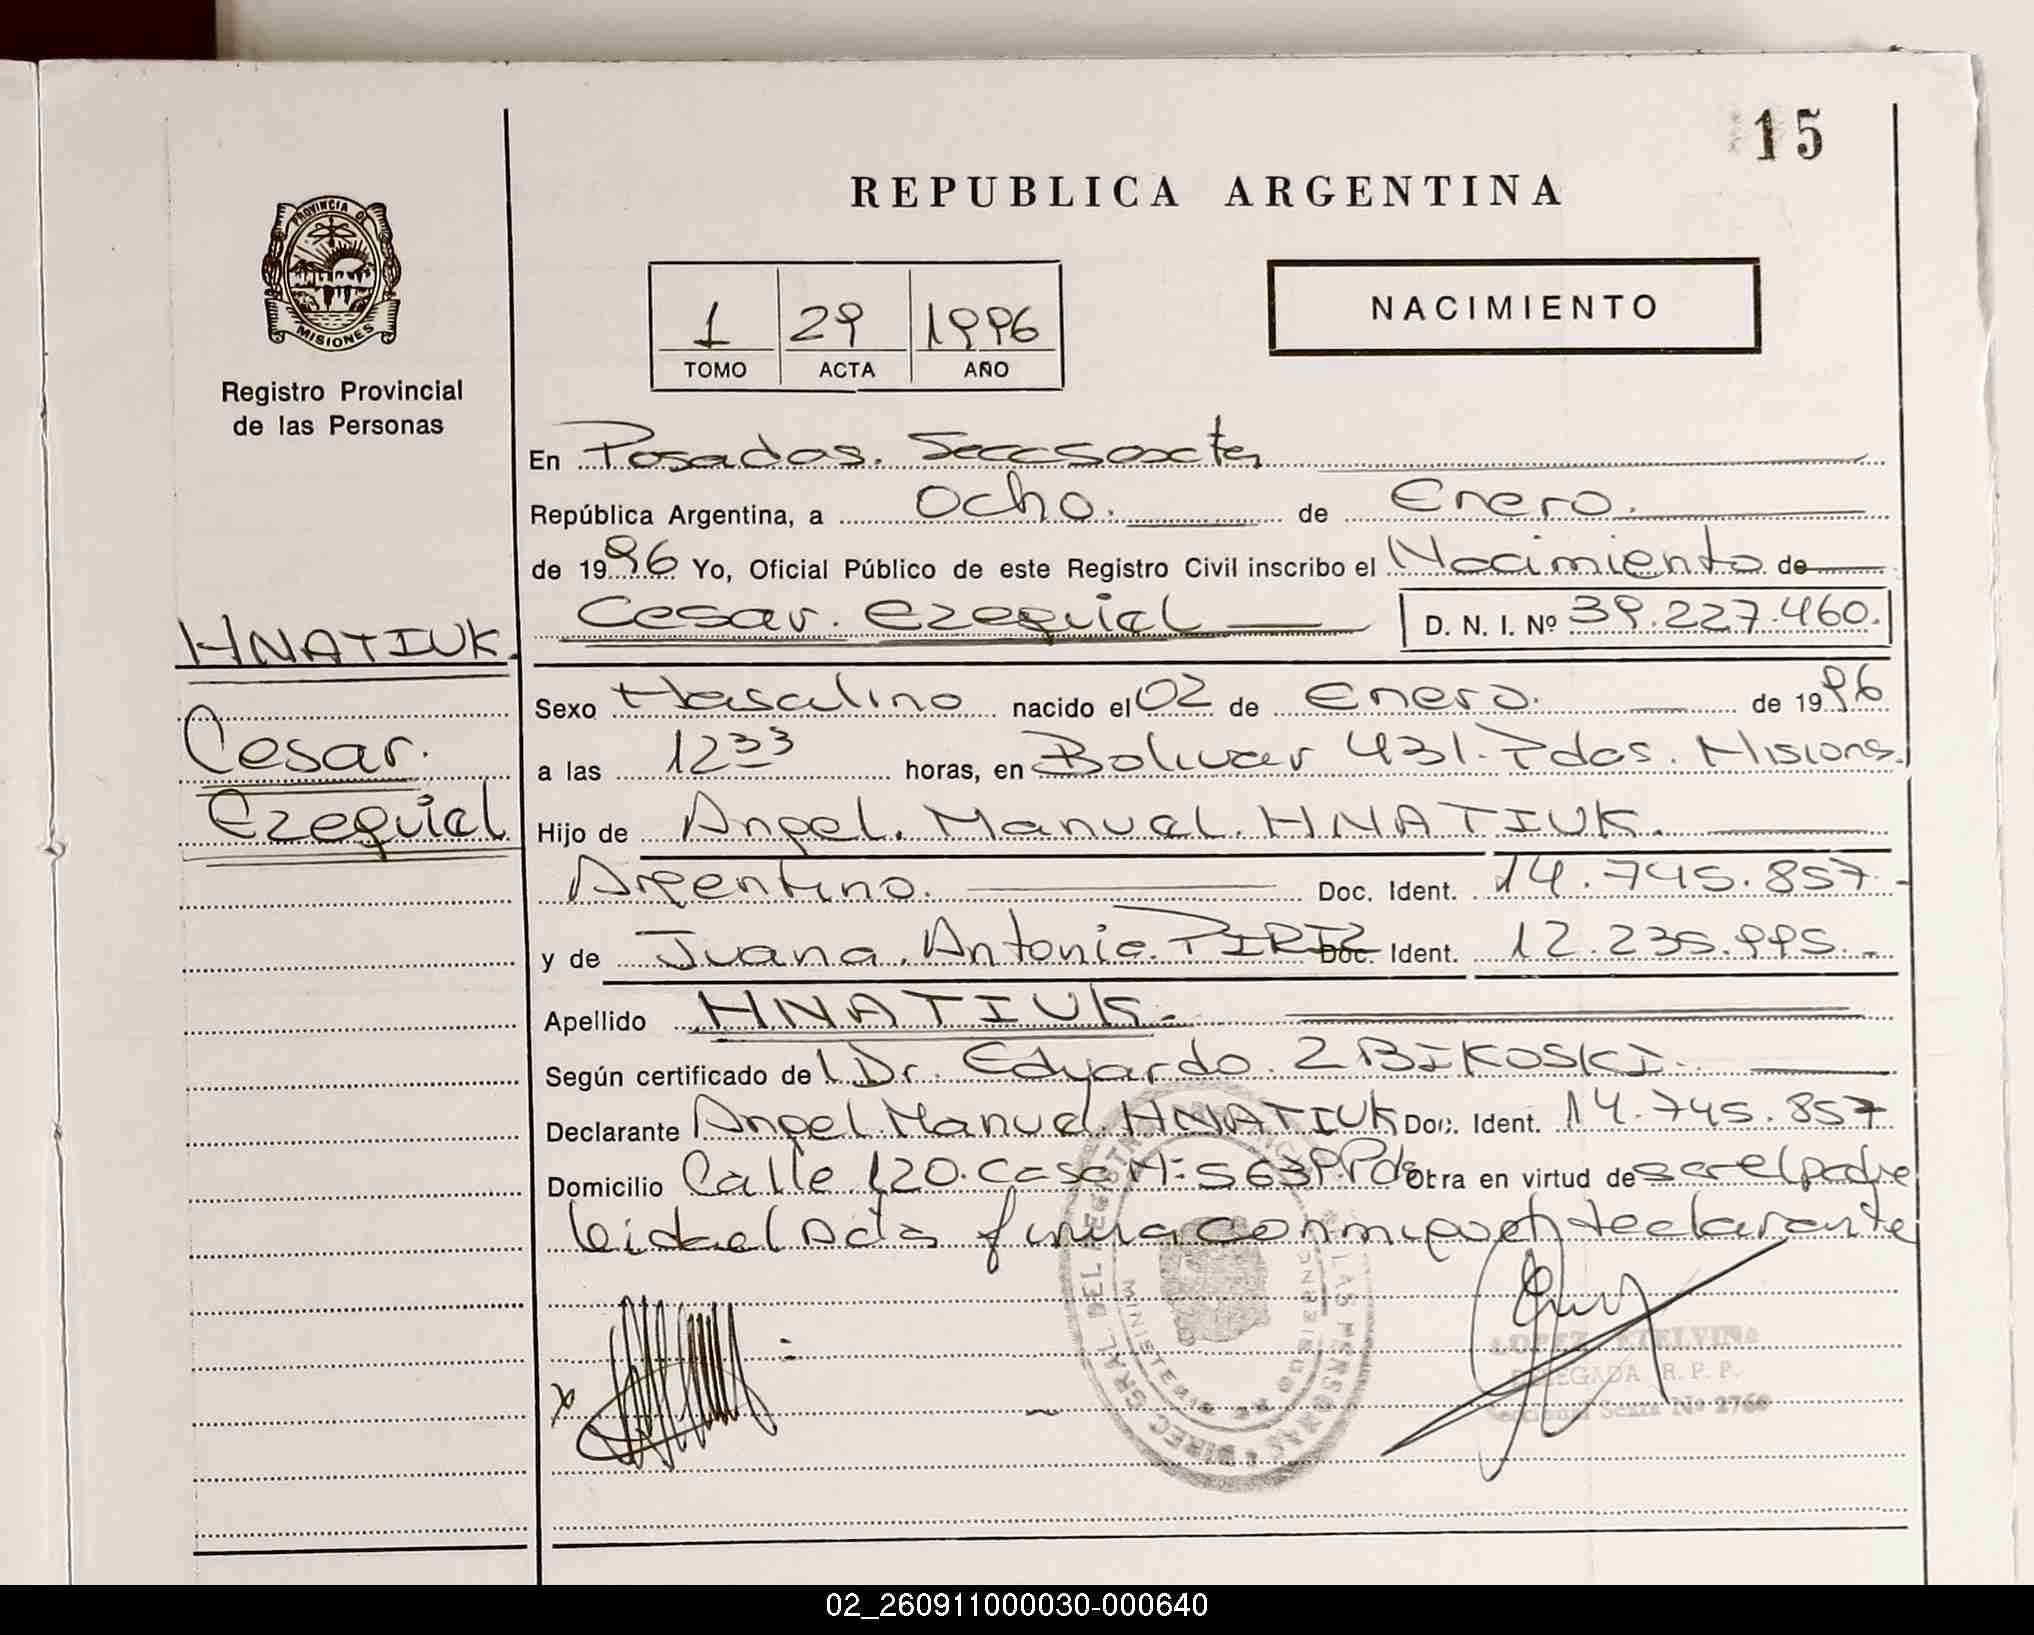 15
REPUBLICA ARGENTINA
PROVINCIA DE
MISIONES
Registro Provincial
de las Personas
1 29 1996
TOMO ACTA AÑO
NACIMIENTO
En Posadas. Secc Sexta
República Argentina, a Ocho. de Enero.
de 1996 Yo, Oficial Público de este Registro Civil inscribo el Nacimiento de
Cesar. Ezequiel D. N. I. Nº 39.227.460.
HNATIUK.
Cesar.
Ezequiel
Sexo Masculino nacido el 02 de Enero. de 1996
a las 12 33 horas, en Bolivar 431. Pdas. Misions.
Hijo de Angel. Manuel. HNATIUK.
Argentino. Doc. Ident. 14.745.857.
y de Juana. Antonia. Doc. Ident. 12.235.995.
Apellido HNATIUK.
Según certificado del Dr. Eduardo. ZBIKOSKI.
Declarante Angel Manuel HNATIUK Doc. Ident. 14.745.857
Domicilio Calle 120. Casa Obra en virtud de ser el padre
leida el Acta firma conmigo el declarante
DELEGADA R. P. P.
Seccional Sexta Nº 2760
02_260911000030-000640